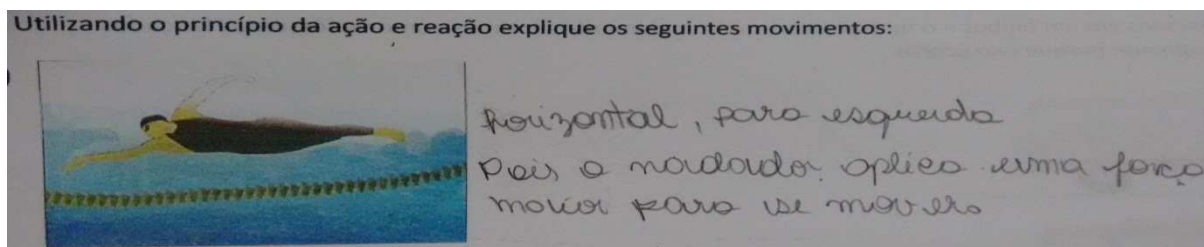 Utilizando o princípio da ação e reação explique os seguintes movimentos:
horizontal, para esquerda
Pois o nadador aplica uma força
maior para se mover